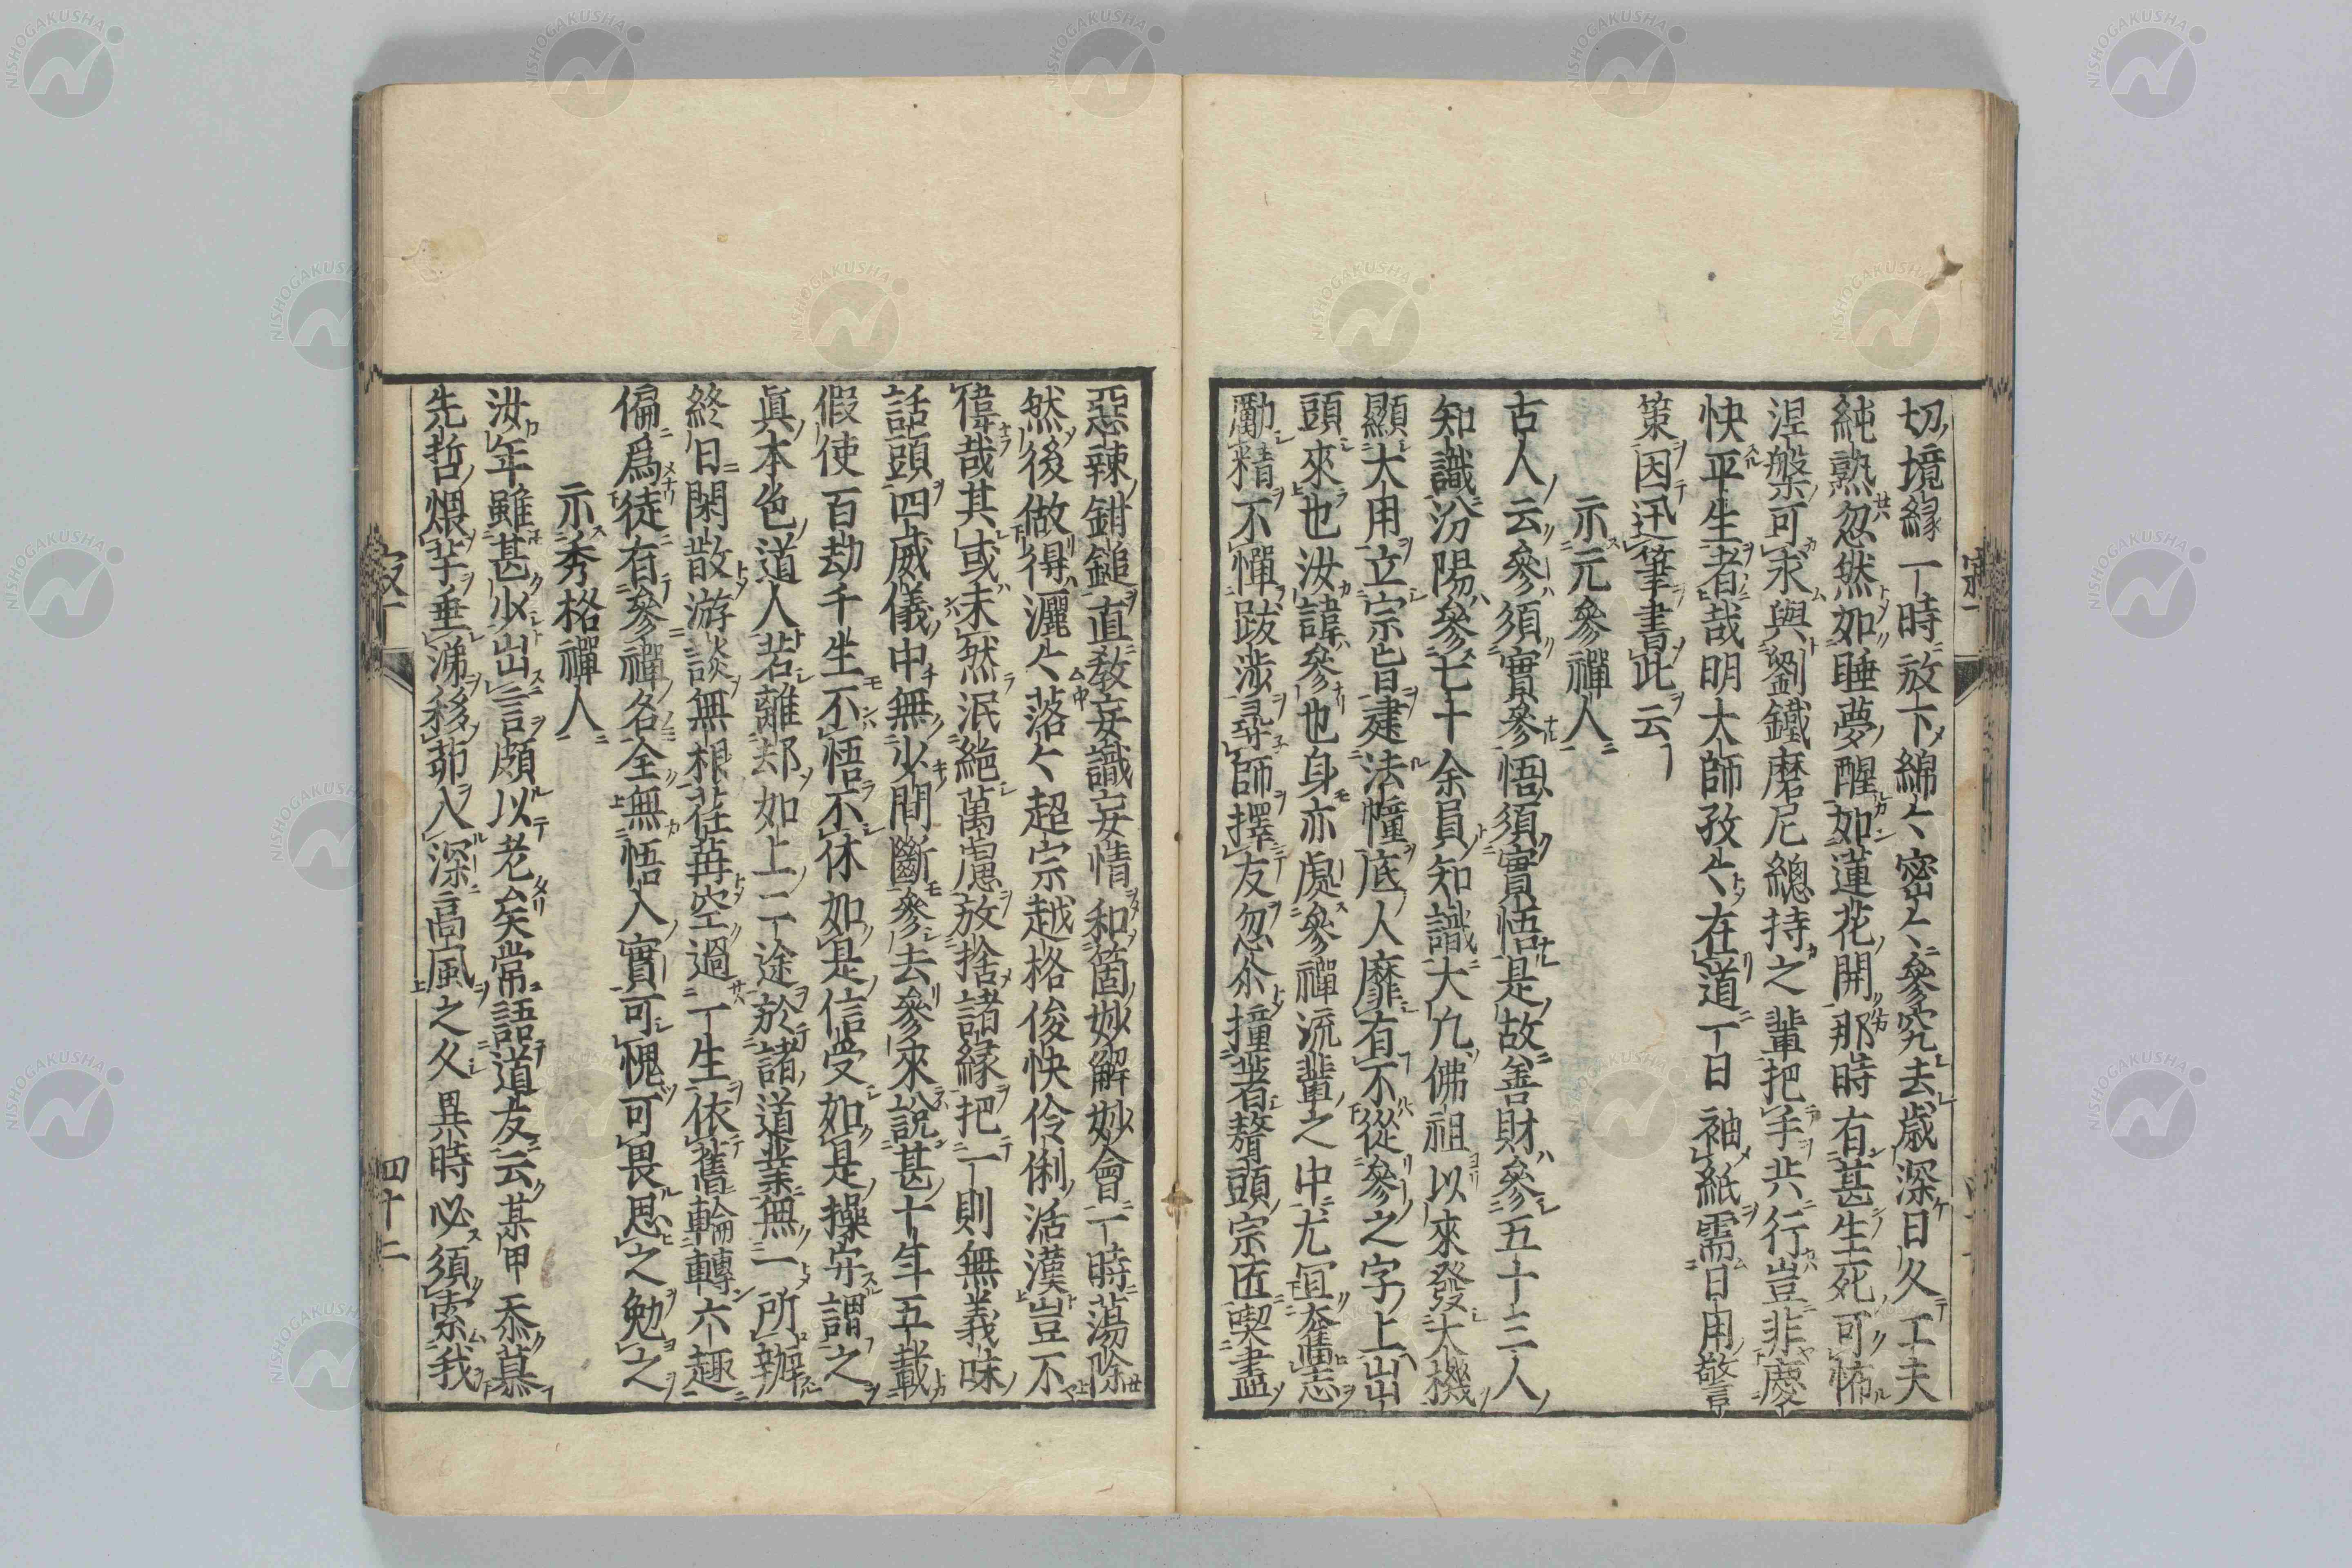 切境緣一時放下綿々密々參究去歲深日久工夫
純熟忽然如睡夢醒如蓮花開那時有甚生死可怖
涅槃可求與劉鐵磨尼總持之輩把手共行豈非慶
快平生者哉明大師孜々在道一日袖紙需日用警
策因迅筆書此云
示元參禪人
古人云參須實參悟須實悟是故善財參五十三人
知識汾陽參七十余員知識大凡佛祖以來發大機
顯大用立宗旨建法幢底人靡有不從參之字上出
頭來也汝諱參也身亦處參禪流輩之中尤宜奮志
勵精不憚跋涉尋師擇友忽尒撞著瞎頭宗匠喫盡
惡辣鉗鎚直教妄識妄情和箇妙解妙會一時蕩除
然後做得灑々落々超宗越格俊快伶俐活漢豈不
偉哉其或未然泯絕萬慮放捨諸緣把一則無義味
話頭四威儀中無少間斷參去參來說甚十年五載
假使百劫千生不悟不休如是信受如是操守謂之
眞本色道人若離却如上一途於諸道業無一所辦
終日閑散游談無根荏苒空過一生依舊輪轉六趣
偏爲徒有參禪名全無悟入實可愧可畏思之勉之
示秀格禪人
汝年雖甚少出言頗以老矣常語道友云某甲忝慕
先哲煨芋垂涕移茆入深高風之久異時必須索我
四十二
NISHOGAKUSHA